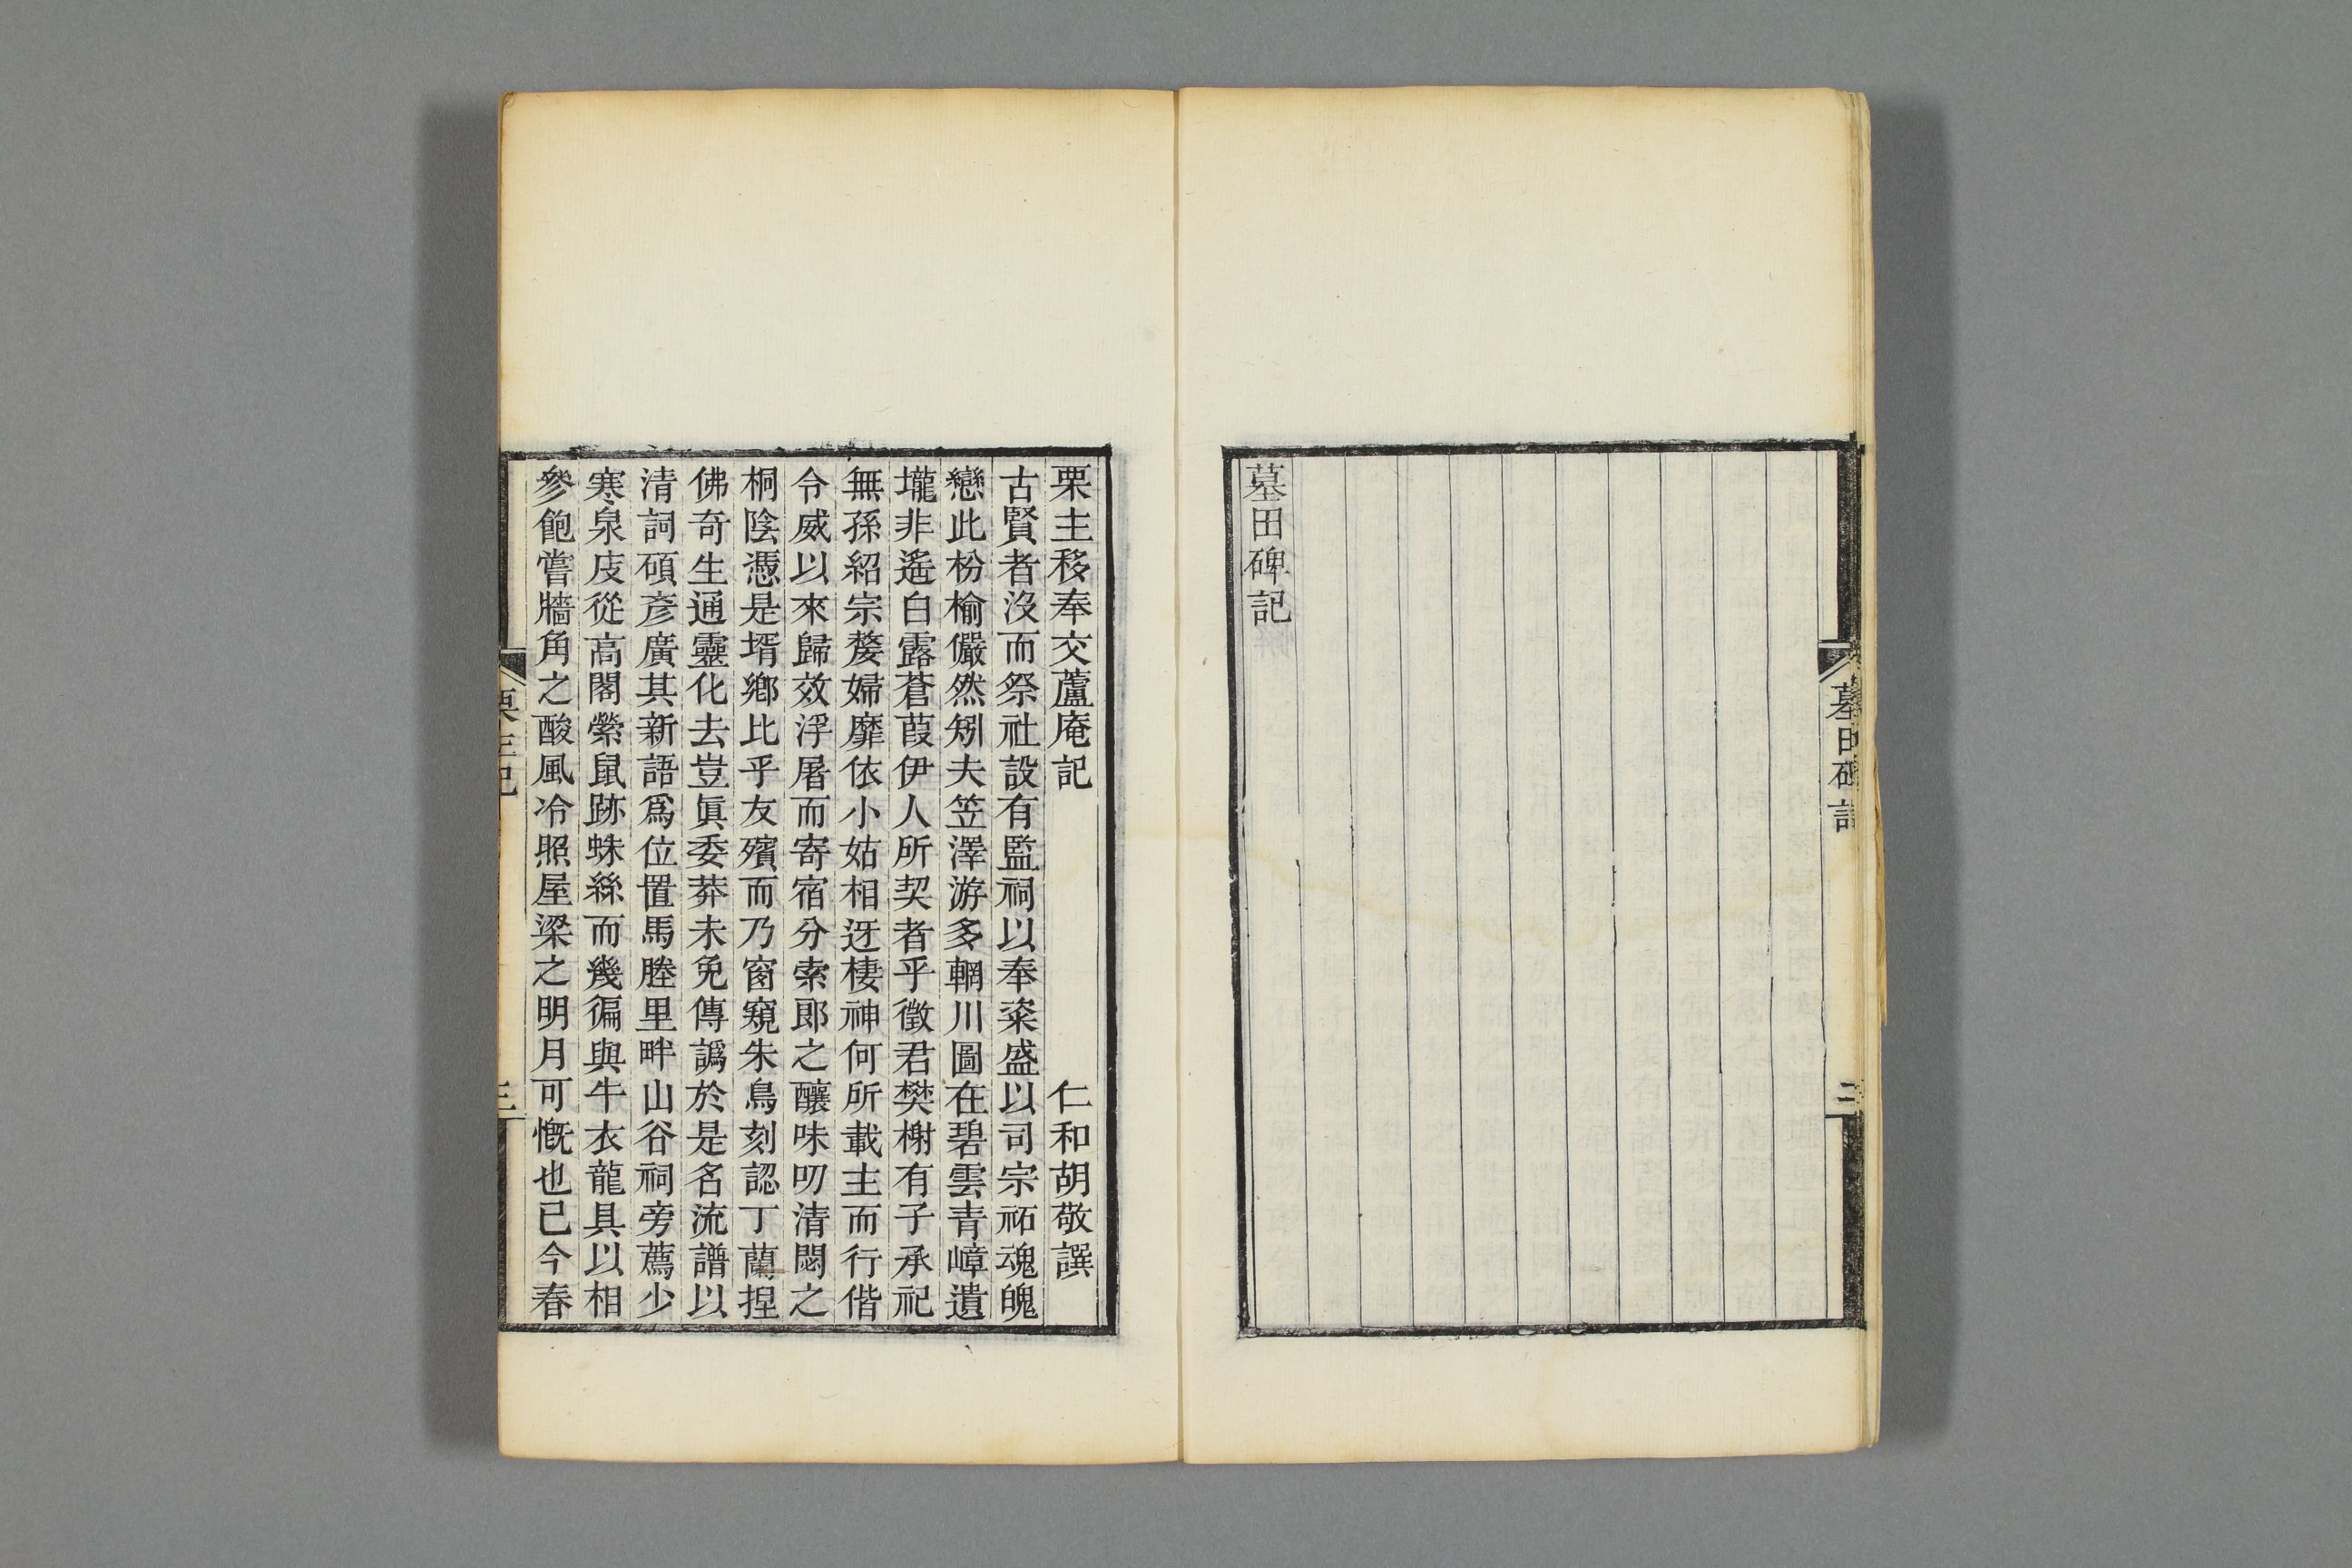 墓田碑記
墓田碑記
二
栗主移奉交蘆庵記　仁和胡敬譔
古賢者沒而祭社設有監祠以奉粢盛以司宗祏魂魄
戀此枌榆儼然矧夫笠澤游多輞川圖在碧雲青嶂遺
壠非遙白露蒼葭伊人所契者乎徵君樊榭有子承祀
無孫紹宗嫠婦靡依小姑相迓棲神何所載主而行偕
令威以來歸效浮屠而寄宿分索郎之釀味叨清閟之
桐陰憑是壻鄉比乎友殯而乃窗窺朱鳥刻認丁蘭捏
佛奇生通靈化去豈眞委莽未免傳譌於是名流譜以
清詞碩彥廣其新語爲位置馬塍里畔山谷祠旁薦少
寒泉庋從高閣縈鼠跡蛛絲而幾徧與牛衣龍具以相
參飽嘗牆角之酸風冷照屋梁之明月可慨也已今春
栗主記
三